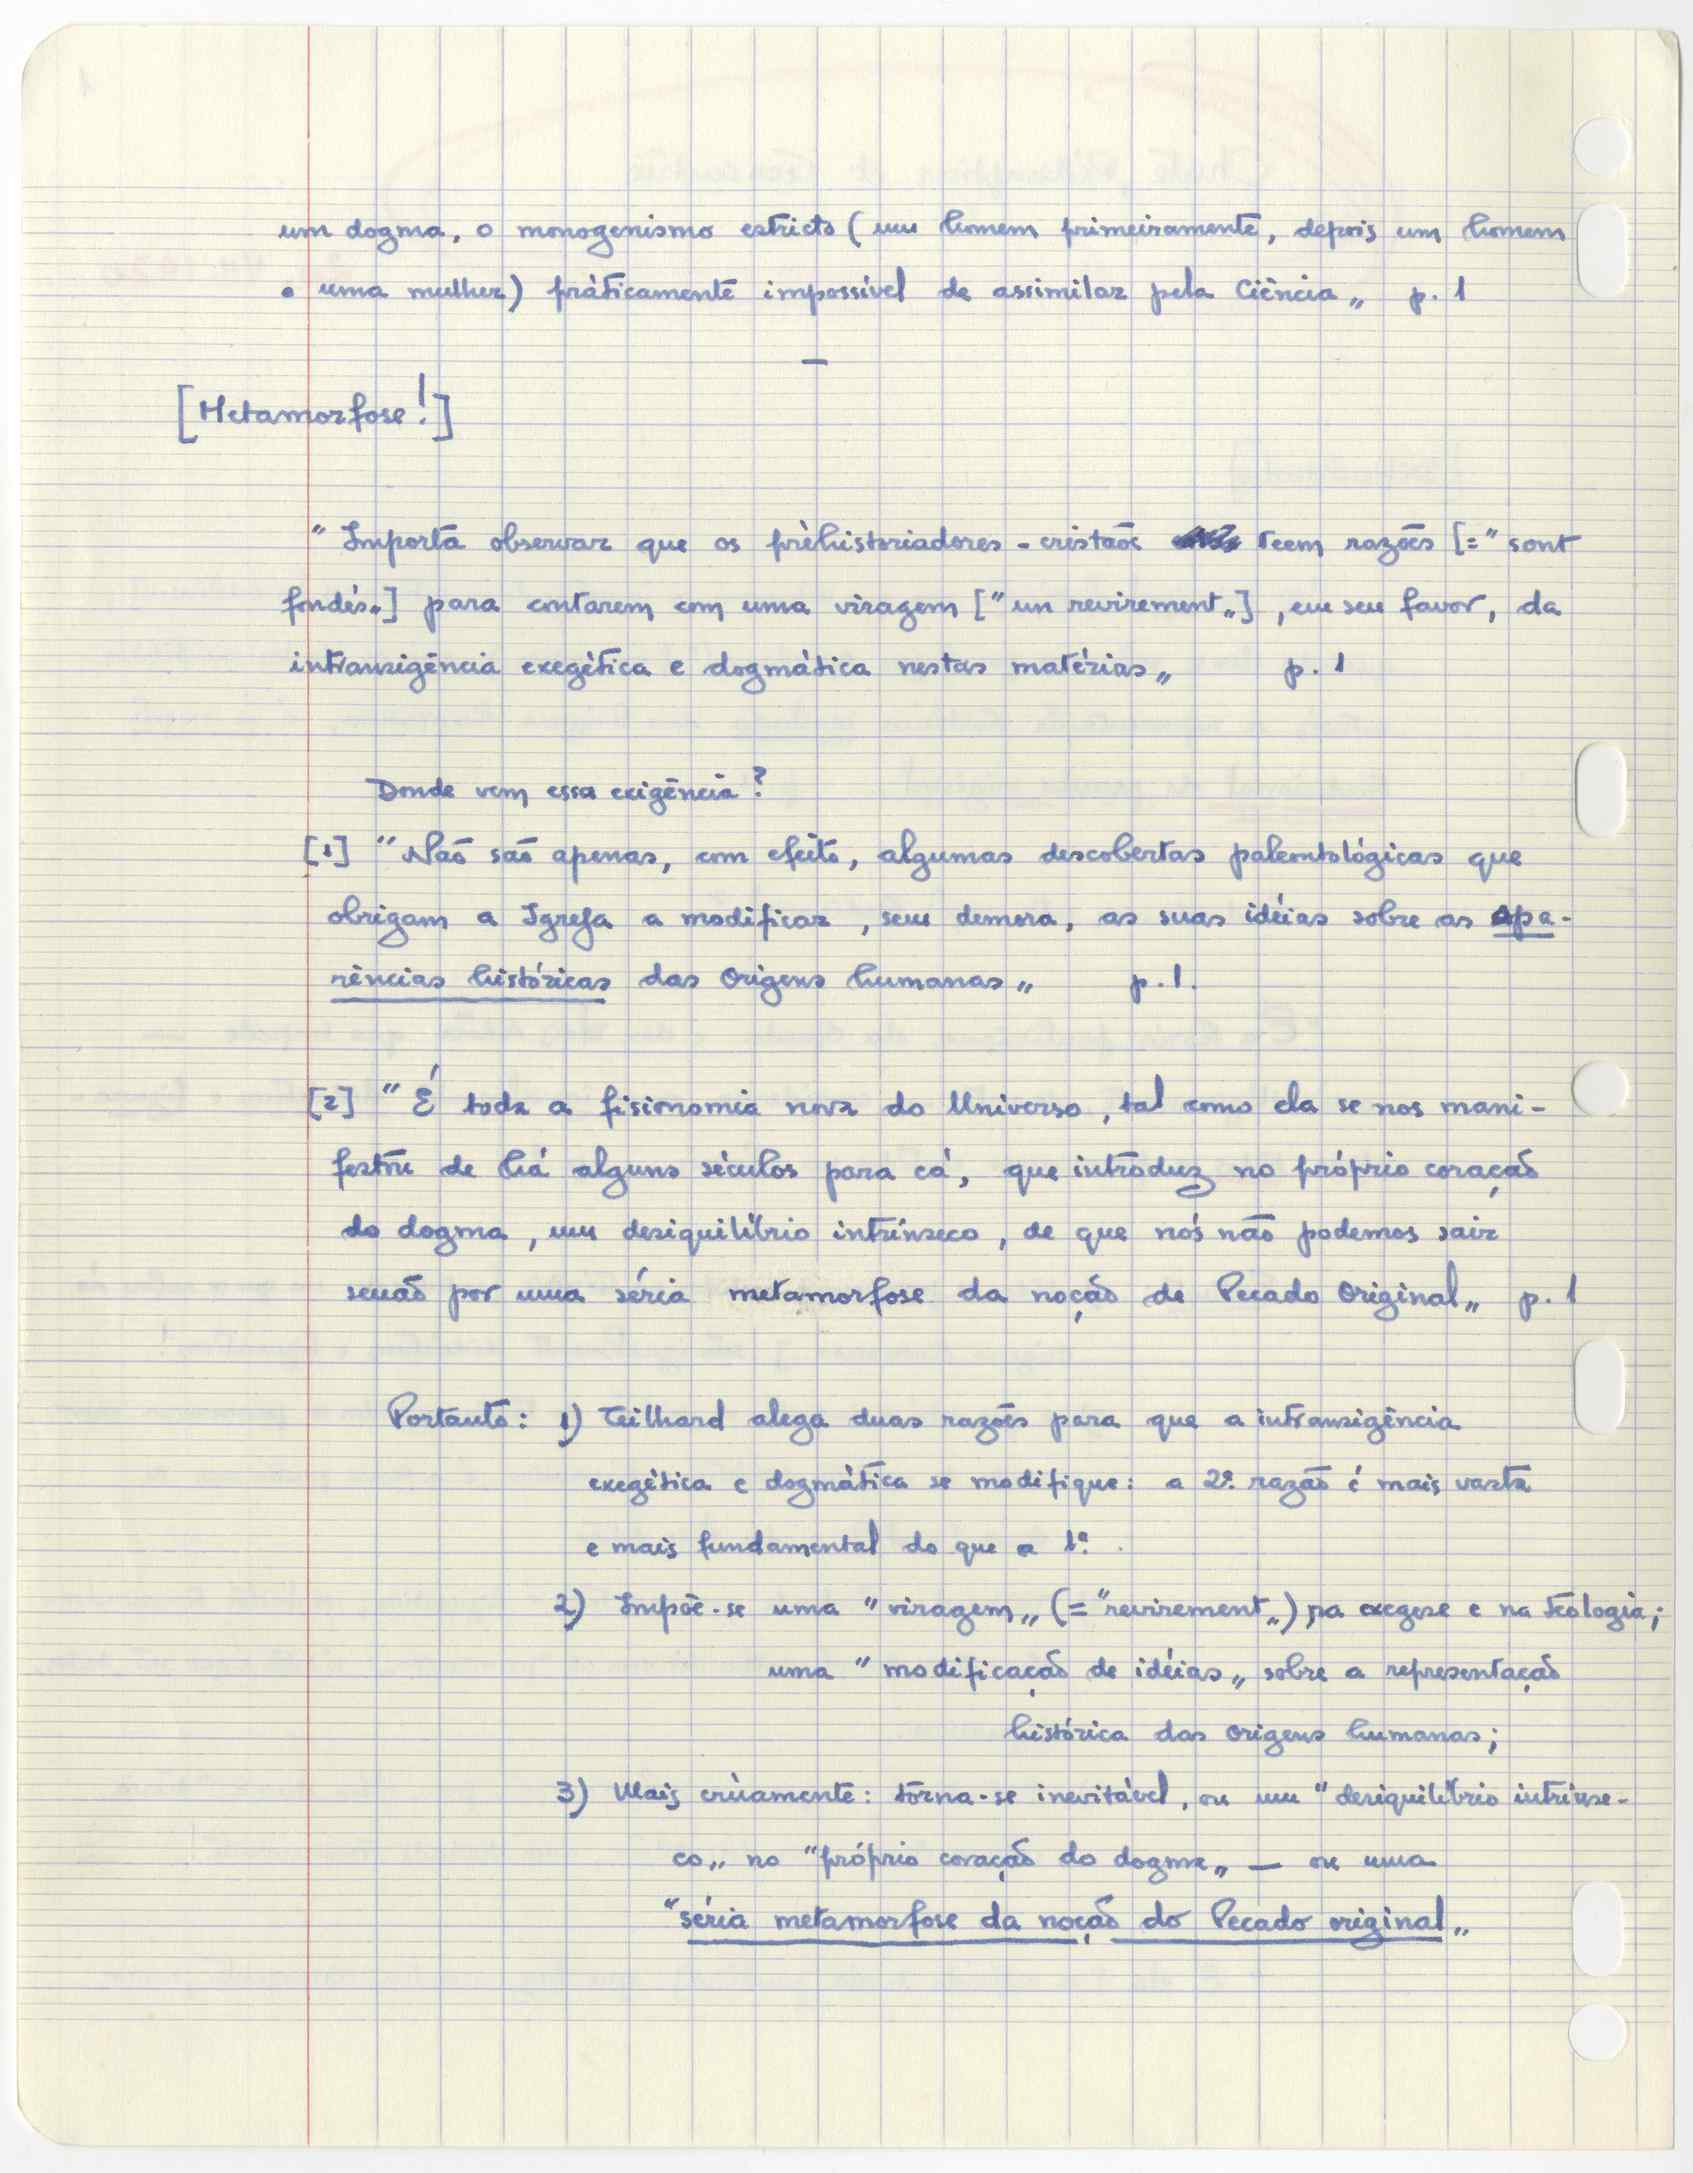 um dogma, o monogenismo estricto (um homem primeiramente, depois um homem
e uma mulher) pràticamente impossível de assimilar pela Ciência„ p. 1
—
[Metamorfose!]
"Importa observar que os prèhistoriadores-cristãos teem razões [="sont
fondés„] para contarem com uma viragem ["un revirement„], em seu favor, da
intransigência exegética e dogmática nestas matérias„ p. 1
Donde vem essa exigência?
[1] "Não são apenas, com efeito, algumas descobertas paleontológicas que
obrigam a Igreja a modificar, sem demora, as suas idéias sobre as apa-
rências históricas das Origens humanas„ p. 1.
[2] "É toda a fisionomia nova do Universo, tal como ela se nos mani-
festou de há alguns séculos para cá, que introduz no próprio coração
do dogma, um desiquilíbrio intrínseco, de que nós não podemos sair
senão por uma séria metamorfose da noção de Pecado Original„ p. 1
Portanto: 1) Teilhard alega duas razões para que a intransigência
exegética e dogmática se modifique: a 2ª. razão é mais vasta
e mais fundamental do que a 1ª.
2) Impõe-se uma "viragem„ (="revirement„) na exegese e na teologia;
uma "modificação de idéias„ sobre a representação
histórica das origens humanas;
3) Mais crùamente: torna-se inevitável, ou um "desiquilíbrio intrínse-
co„ no "próprio coração do dogma„ — ou uma
"séria metamorfose da noção do Pecado original„